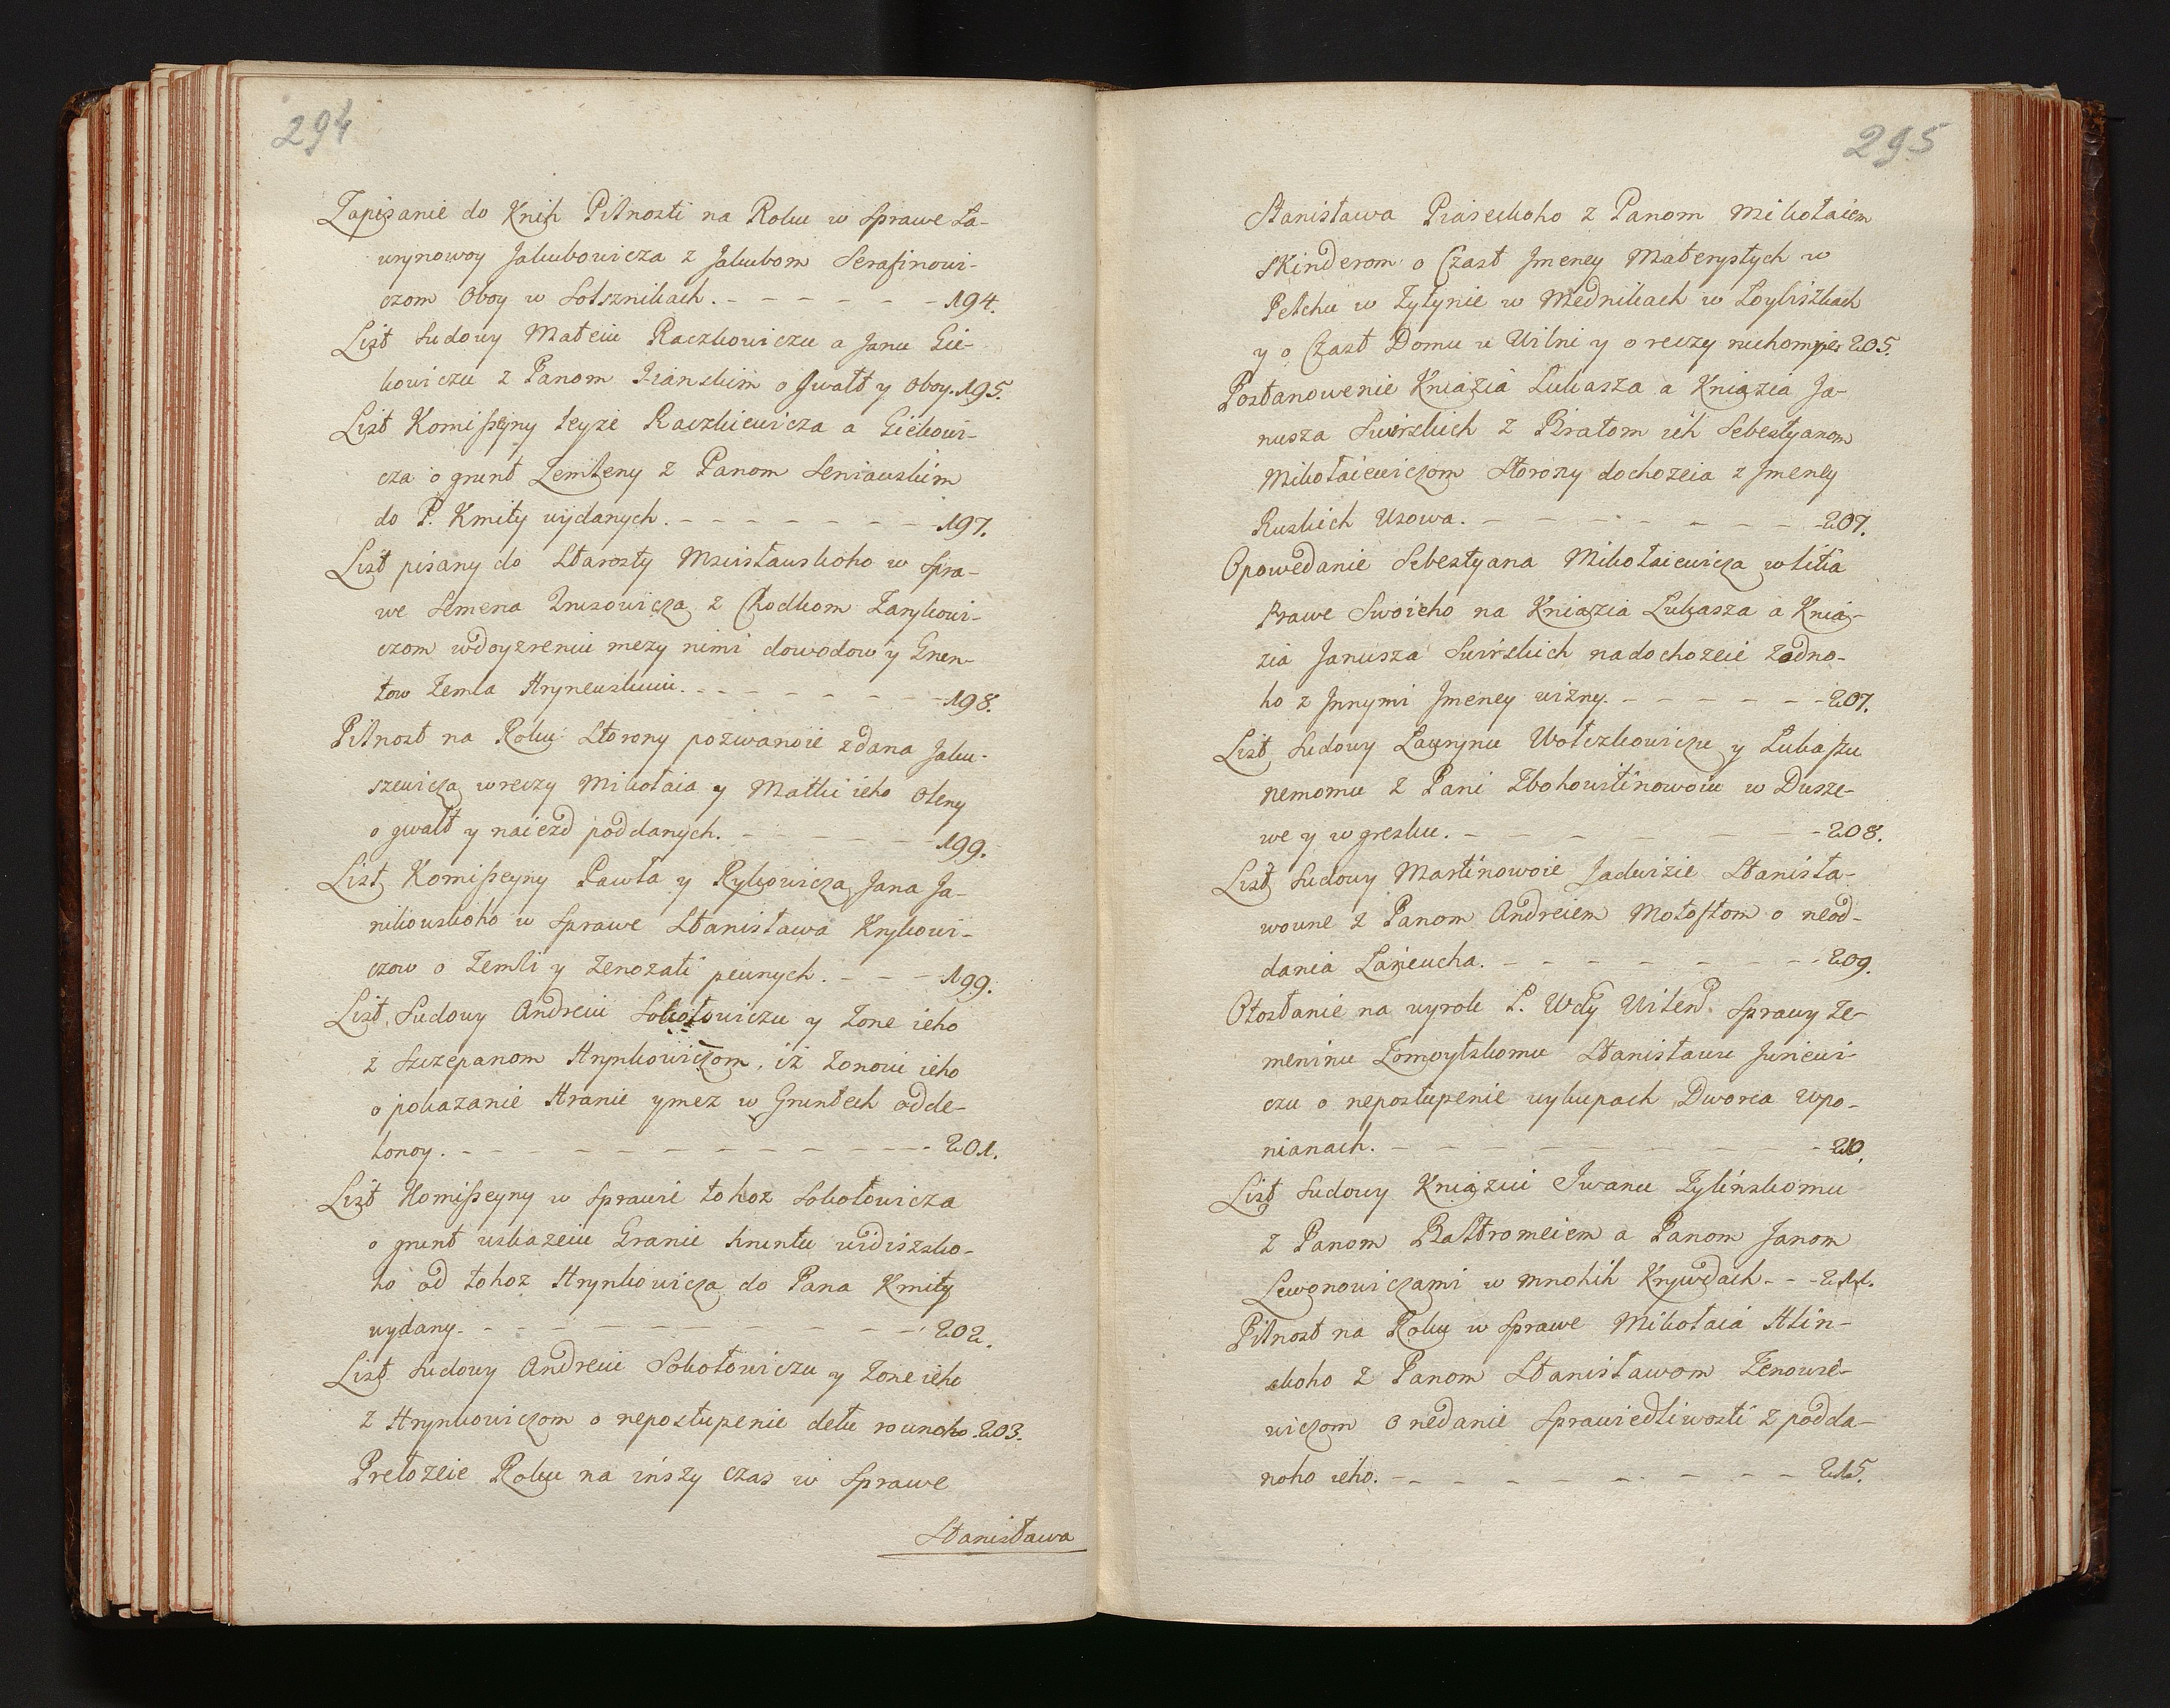 294
Zapisanie do Knih Pilnosti na Roku w Sprawe Ła-
wrynowoy Jakubowicza z Jakubom Serafinowi-
czom Oboy w Solsznikach. - - - - - - 194.
List Sudowy Mateiu Raczkowiczu a Janu Gie-
kowiczu z Panom o Gwałt y Oboy. 195.
List Komisseyny teyże Raczkiewicza a Giekowi-
cza o grunt Zemleny z Panom Seniauskim
do P. Kmity wydanych. - - - - - - - 197.
List pisany do Starosty Mscisławskoho w Spra-
we Semena z Chodkom Zarykowi-
czom wdoyzreniu mezy nimi dowodow y Grun-
tow Zemla Hryneuskuiu. - - - - - - - 198.
Pilnost na Roku Storony pozwanoie zdana Jaku-
szewicza wreczy Mikołaia y Matki ieho Oleny
o gwałt y naiezd poddanych. - - - - - - 199.
List Komisseyny Pawła y Rykowicza Jana Ja-
nikowskoho w Sprawe Stanisława Krykowi-
czow o Zemli y Zenozati pewnych. - - - 199.
List Sudowy Andreiu Sokołowiczu y Zone ieho
z Szczepanom Hrynkowiczom, iż Zonoiu ieho
o pokazanie Hranic ymez w Gruntech odde-
lonoy. - - - - - - - - - - - 201.
List Komisseyny w Sprawie tohoz Sokołowicza
o grunt ukazeiu Granic hruntu widiszsko-
ho od tohoz Hrynkowicza do Pana Kmity
wydany. - - - - - - - - - - 202.
List Sudowy Andreiu Sokołowiczu y Zone ieho
z Hrynkowiczom o nepostupenie delu rownoho. 203.
Prełozeie Roku na inszy czas w Sprawe
Stanisława
295
Stanisława Piaseckoho z Panom Mikołaiem
Skinderom o Czast Jmeney Materystych w
Pelchu w Żytynie w Mednikach w Loyliszkach
y o Czast Domu u Wilni y o reczy ruchomyie 205.
Postanowenie Kniazia Łukasza a Kniazia Ja-
nusza Swirskich z Bratom ich Sebestyanom
Mikołaiewiczom Storozy dochozeia z Jmeney
Ruskich Usowa. - - - - - - - - 207.
Opowedanie Sebestyana Mikołaiewicza wlitia
Prawe Swoieho na Kniazia Łukasza a Knia-
zia Janusza Swirskich nadochozeie żodno-
ho z Jnnymi Jmeney wiżny. - - - - - - 207.
List Sudowy Ławrynu Wołczkowiczu y Łukaszu
nemomu z Pani Zbohowitinowoiu w Dusze-
we y w gresku. - - - - - - - 208.
List Sudowy Martinowoie Jadwizie Stanisła-
wowne z Panom Andreiem Motostom o neod-
dania Łancucha. - - - - - - - - 209.
Otosłanie na wyrok P. Wdy Wilend. Sprawy Ze-
meninu Żomoytskomu Stanisławu Juriewi-
czu o nepostupenie wykupach Dworca wpo-
nianach. - - - - - - - - 210.
List Sudowy Kniaziu Jwanu Zylinskomu
z Panom Baltromeiem a Panom Janom
Lewonowiczami w mnohih Krywdach. - - 211.
Pilnost na Roku w Sprawe Mikołaia Hlin-
skoho z Panom Stanisławom Zenowie-
wiczom o nedanie Sprawiedliwosti z podda-
noho ieho. - - - - - - - - 215.